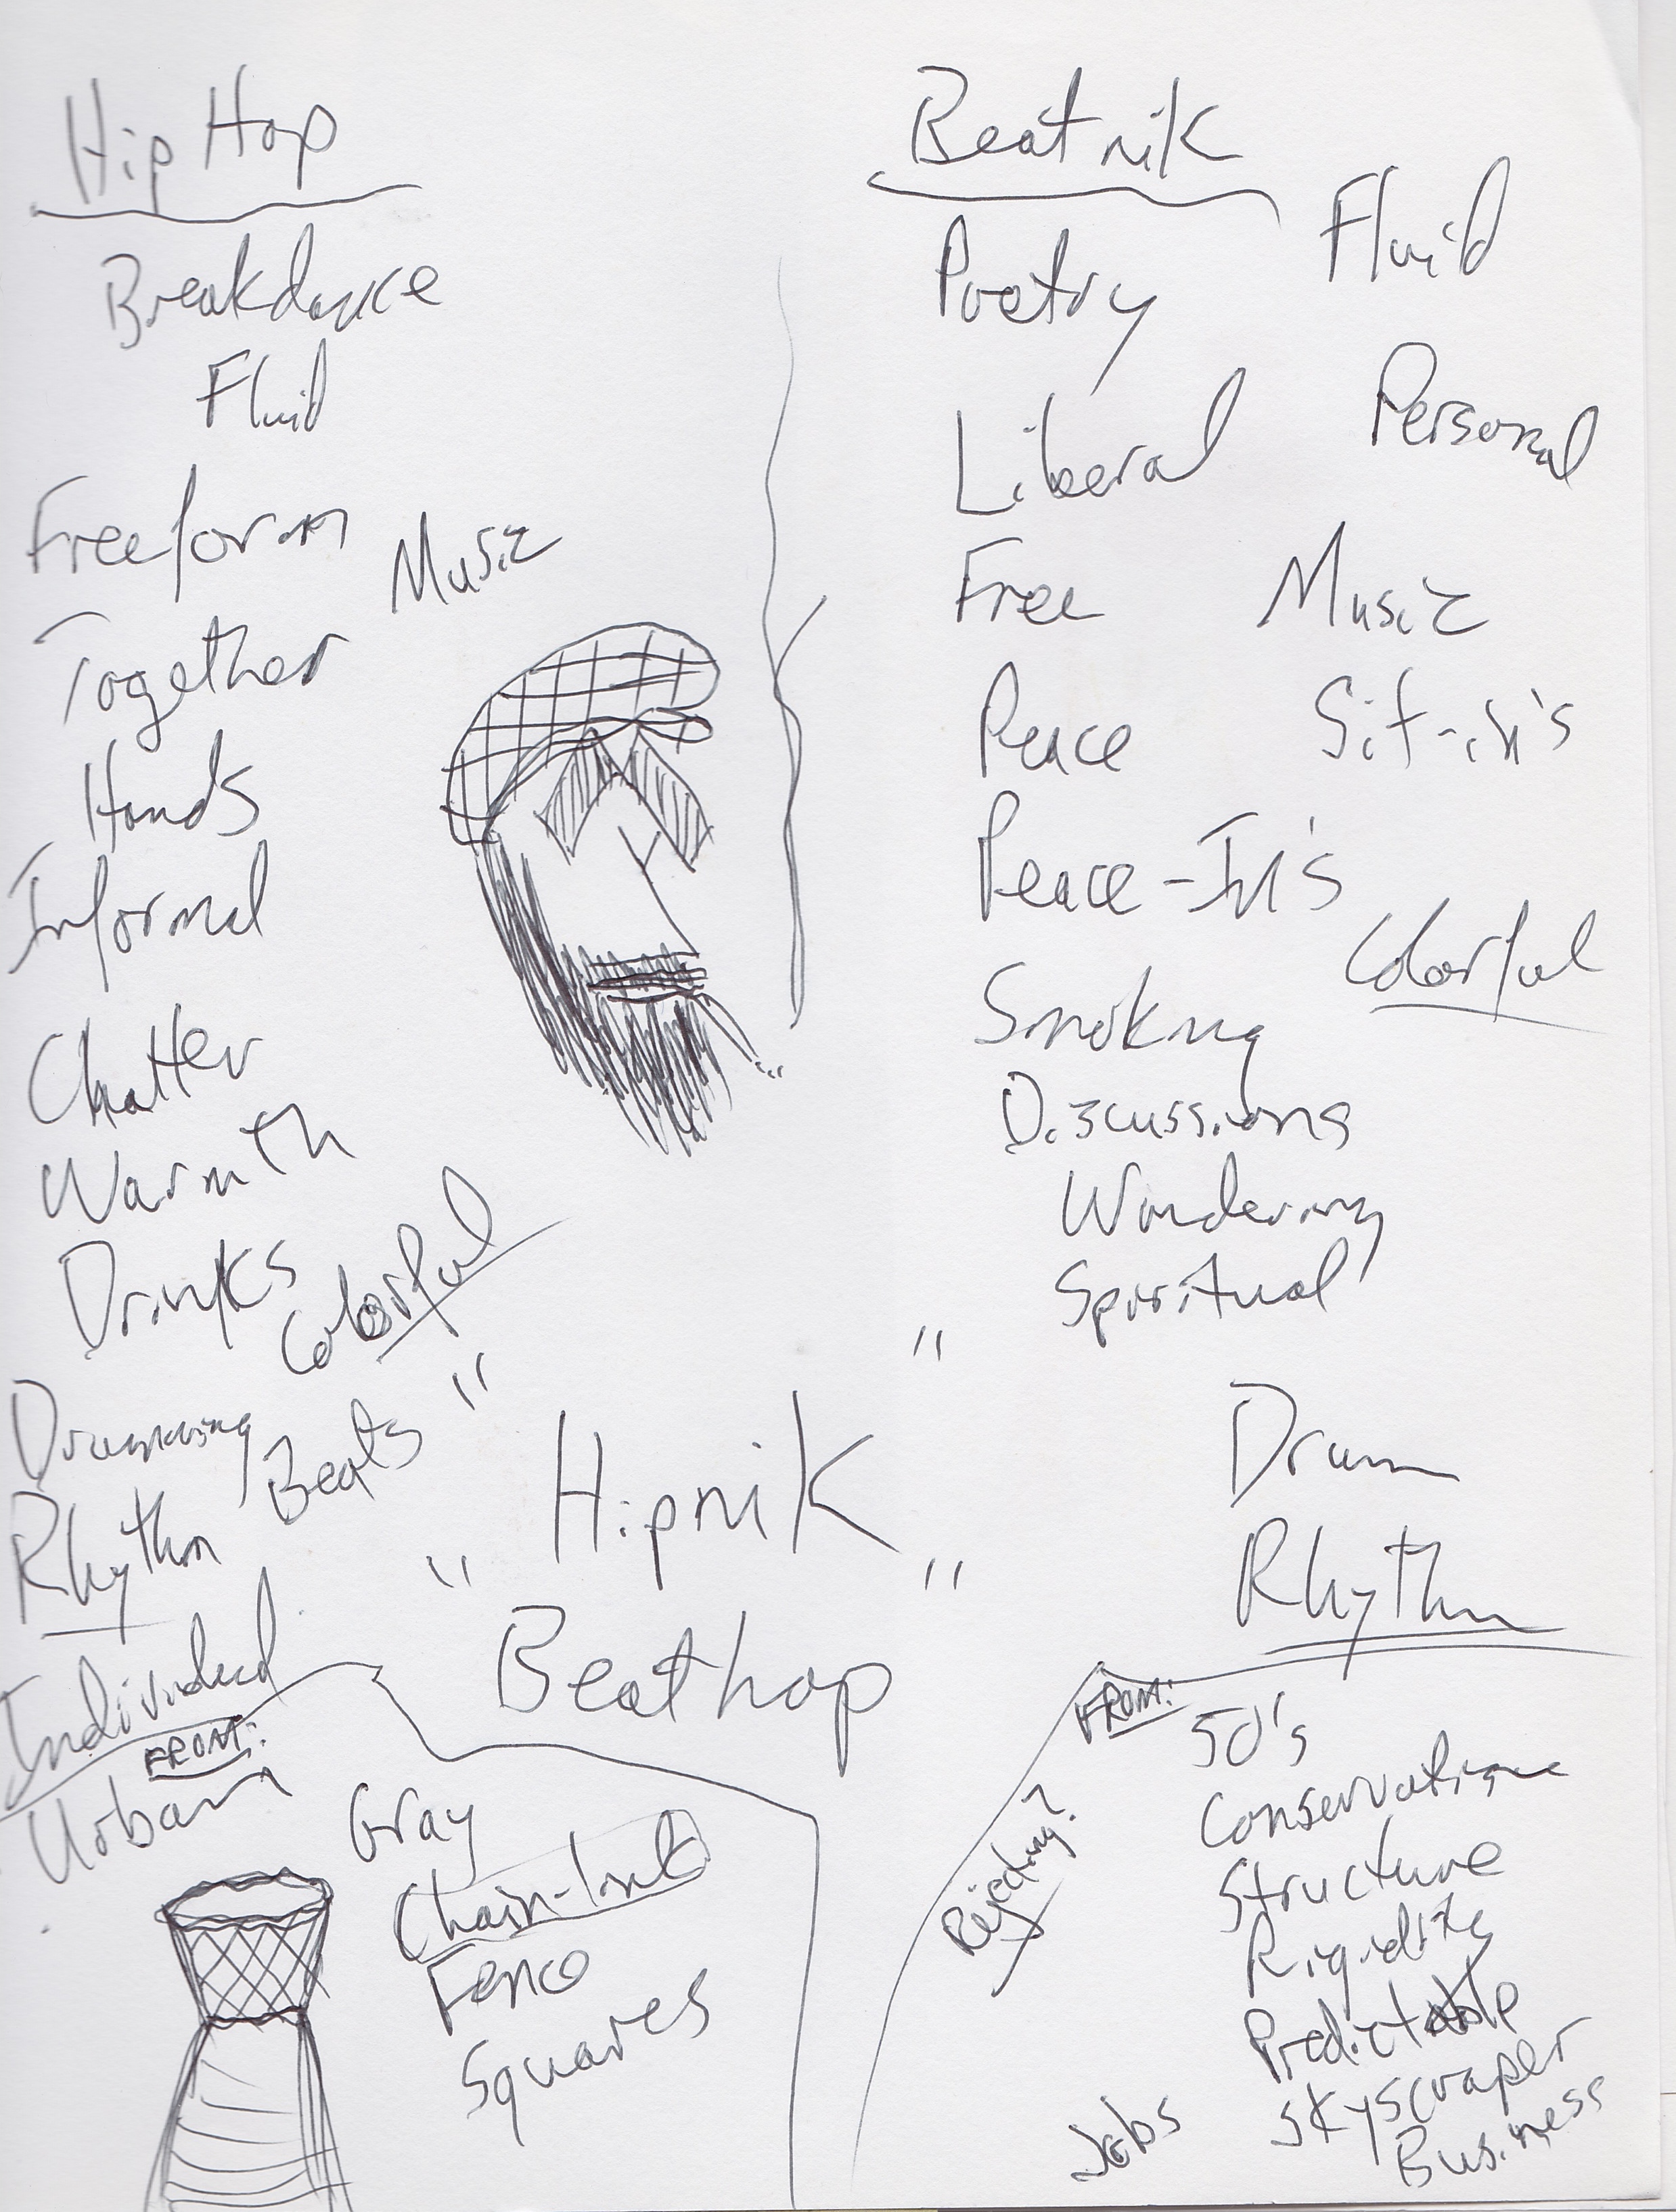 Hip Hop
Breakdance
Fluid
Freeform
Music
Together
Hands
Informal
Chatter
Warmth
Drinks
Colorful
Drumming
Beats
Rhythm
Individual
FROM:
Urban
Gray
Chain-Link
Fence
Squares
"Hipnik"
"Beathop"
Beatnik
Poetry
Fluid
Liberal
Personal
Free
Music
Peace
Sit-in's
Peace-In's
Colorful
Smoking
Discussions
Wandering
Spiritual
Drum
Rhythm
FROM:
Rejecting?
50's
Conservatism
Structure
Rigidity
Predictable
Skyscraper
Business
Jobs